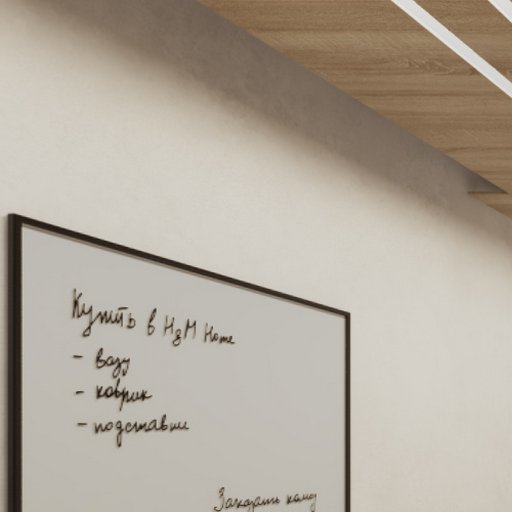 Купить в H&M Home
- вазу
- коврик
- подставки
Заказать кому